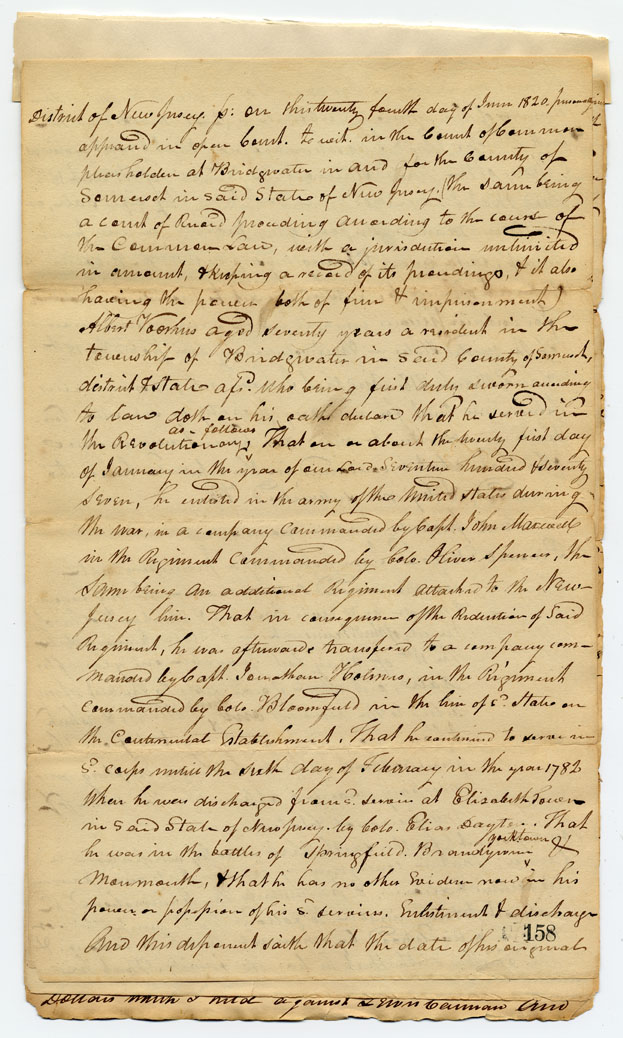 District of New Jersey. ss: on this twenty fourth day of June 1820. personally
appeared in open Court. to wit. in the Court of Common
pleas holden at Bridgwater in and for the County of
Somerset in said State of New Jersey. (the same being
a court of Record proceeding according to the course of
the Common Law, with a jurisdiction unlimited
in amount, & keeping a record of its proceedings, & it also
having the power both of fine & imprisonment)
Albert Voorhies aged seventy years a resident in the
township of Bridgwater in said County of Somerset,
district & state afsd. who being first duly sworn according
to law doth on his oath declare that he served in
the Revolutionary as follows That on or about the twenty first day
of January in the year of our Lord Seventeen hundred & seventy
seven, he enlisted in the army of the United States during
the war, in a company commanded by Capt. John Maxwell
in the Regiment commanded by Colo. Oliver Spencer, the
same being an additional Regiment attached to the New-
Jersey line. That in consequence of the Reduction of Said
Regiment, he was afterwards transferred to a company com-
manded by Capt. Jonathan Holmes, in the Regiment
commanded by Colo. Bloomfield in the line of sd. State on
the Continental Establishment. That he continued to serve in
sd. corps untill the sixth day of February in the year 1782
when he was discharged from sd. service at Elizabeth Town
in said State of New Jersey. by Colo. Elias Dayton. That
he was in the battles of Springfield. Brandywine yorktown &
Monmouth, & that he has no other Evidence now in his
power or possession of his sd. services. Enlistment & discharge
And this deponent saith that the date of his original
158
Dollars which I held against Lewis